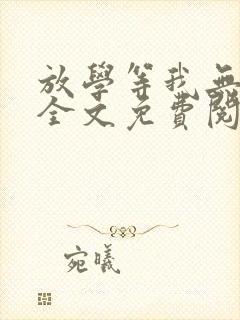 放學等我無
全文免費閱
宛曦